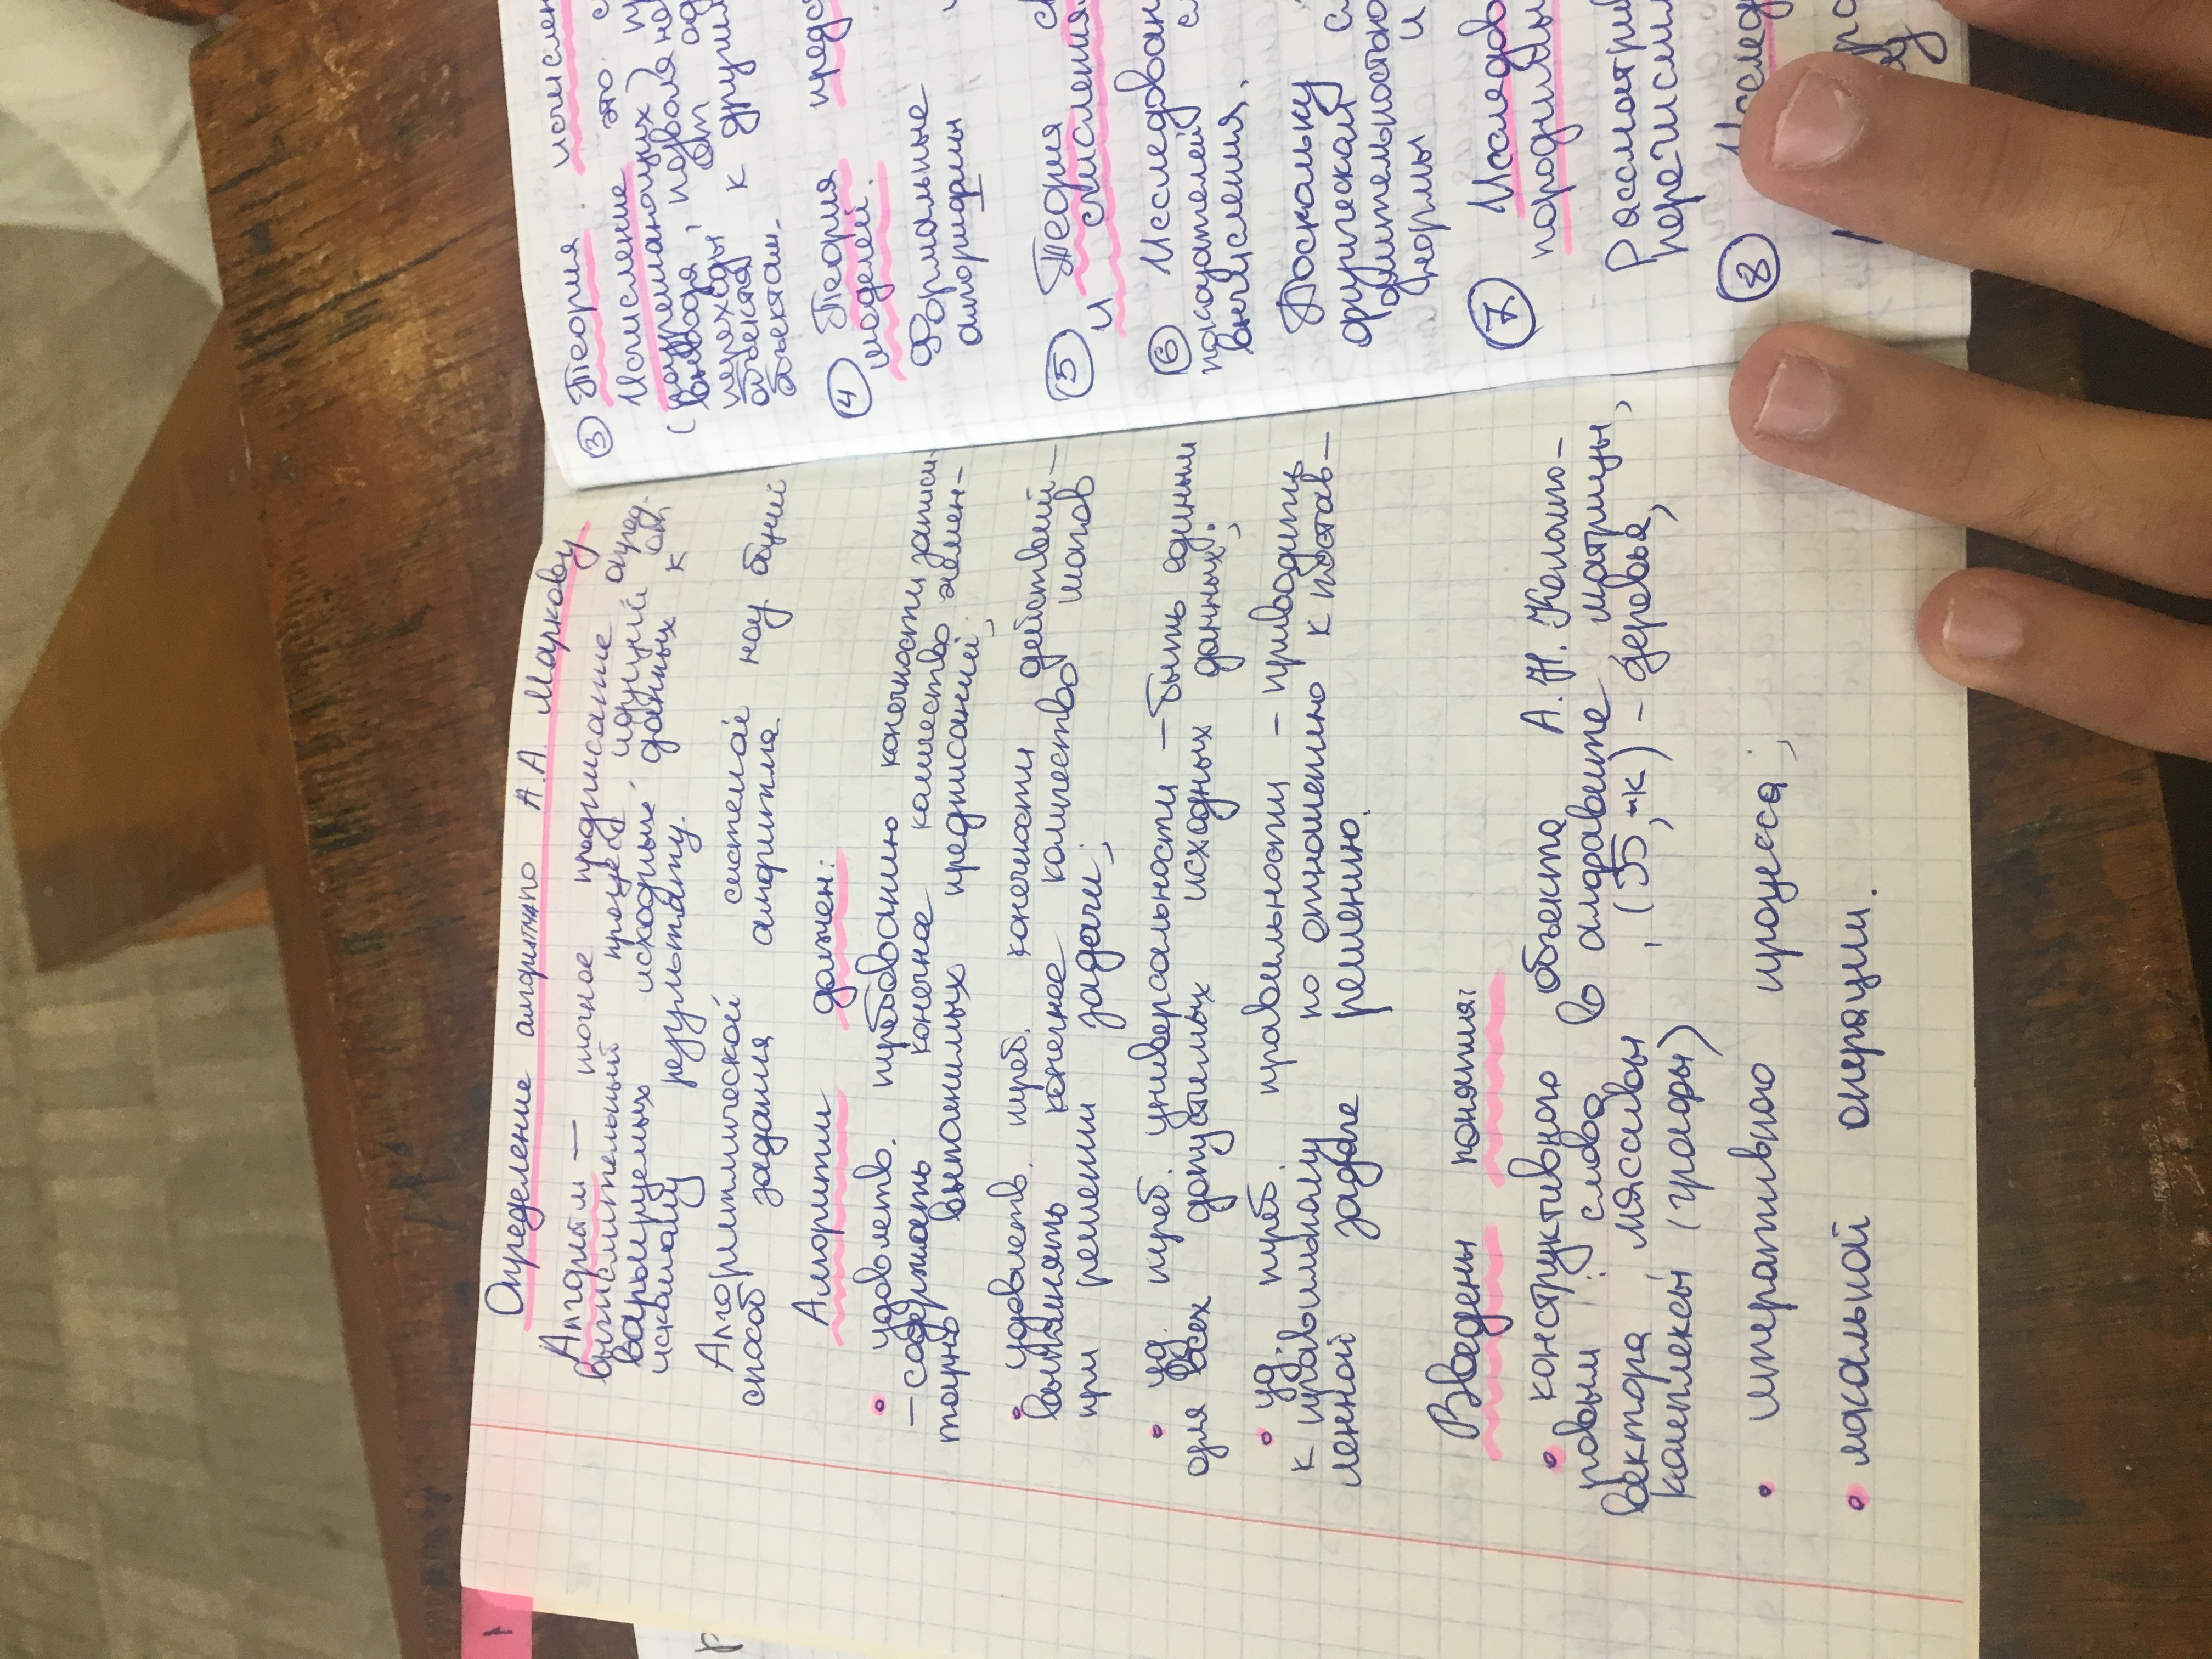 1
Определение алгоритма по А.А. Маркову
Алгоритм — точное предписание опред.
вычислительный процесс, идущий от
варьируемых исходных данных к
искомому результату.
Алгоритмической системой наз. общий
способ задания алгоритма.
Алгоритм должен:
• удовлетв. требованию конечности записи-
— содержать конечное количество элемен-
тарно выполнимых предписаний;
• удовлетв. треб. конечности действий —
выполнять конечное количество шагов
при решении задачи;
• уд. треб. универсальности — быть единым
для всех допустимых исходных данных;
• уд. треб. правильности — приводить
к правильному по отношению к постав-
ленной задаче решению.
Введены понятия:
• конструктивного объекта А.Н. Колмого-
ровым : слова в алфавите, матрицы,
вектора, массивы, (Б,-к) - деревья,
комплексы (графы)
• итеративного процесса;
• локальной операции.
③ Теория исчислен
Исчисление это с
(разрешающих) пр
вывода, позволяю
переходы от од
объекта к другим
объектам.
④ Теория предс
моделей.
Формальные
алгорифмы
⑤ Теория с
и счисления.
⑥ Исследован
показателей сл
вычисления.
Поскольку
физической с
длительностью
нормы и
⑦ Исследов
породимы
Рассматрив
перечисли
⑧ Исслед